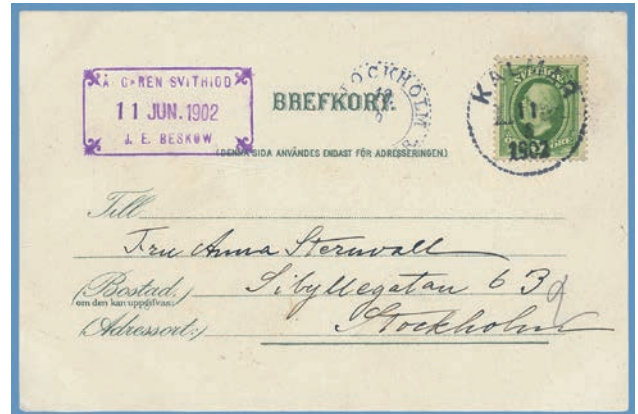 Å. G>REN SVITHIOD
11 JUN. 1902
J. E. BESKOW
BREFKORT.
STOCKHOLM
KALMAR
11
6
1902
SVERIGE
(DENNA SIDA ANVÄNDES ENDAST FÖR ADRESSERINGEN.)
Till
Fru Anna Sternvall
(Bostad.) Sibyllegatan 63
om den kan uppgifvas.
(Adressort:) Stockholm